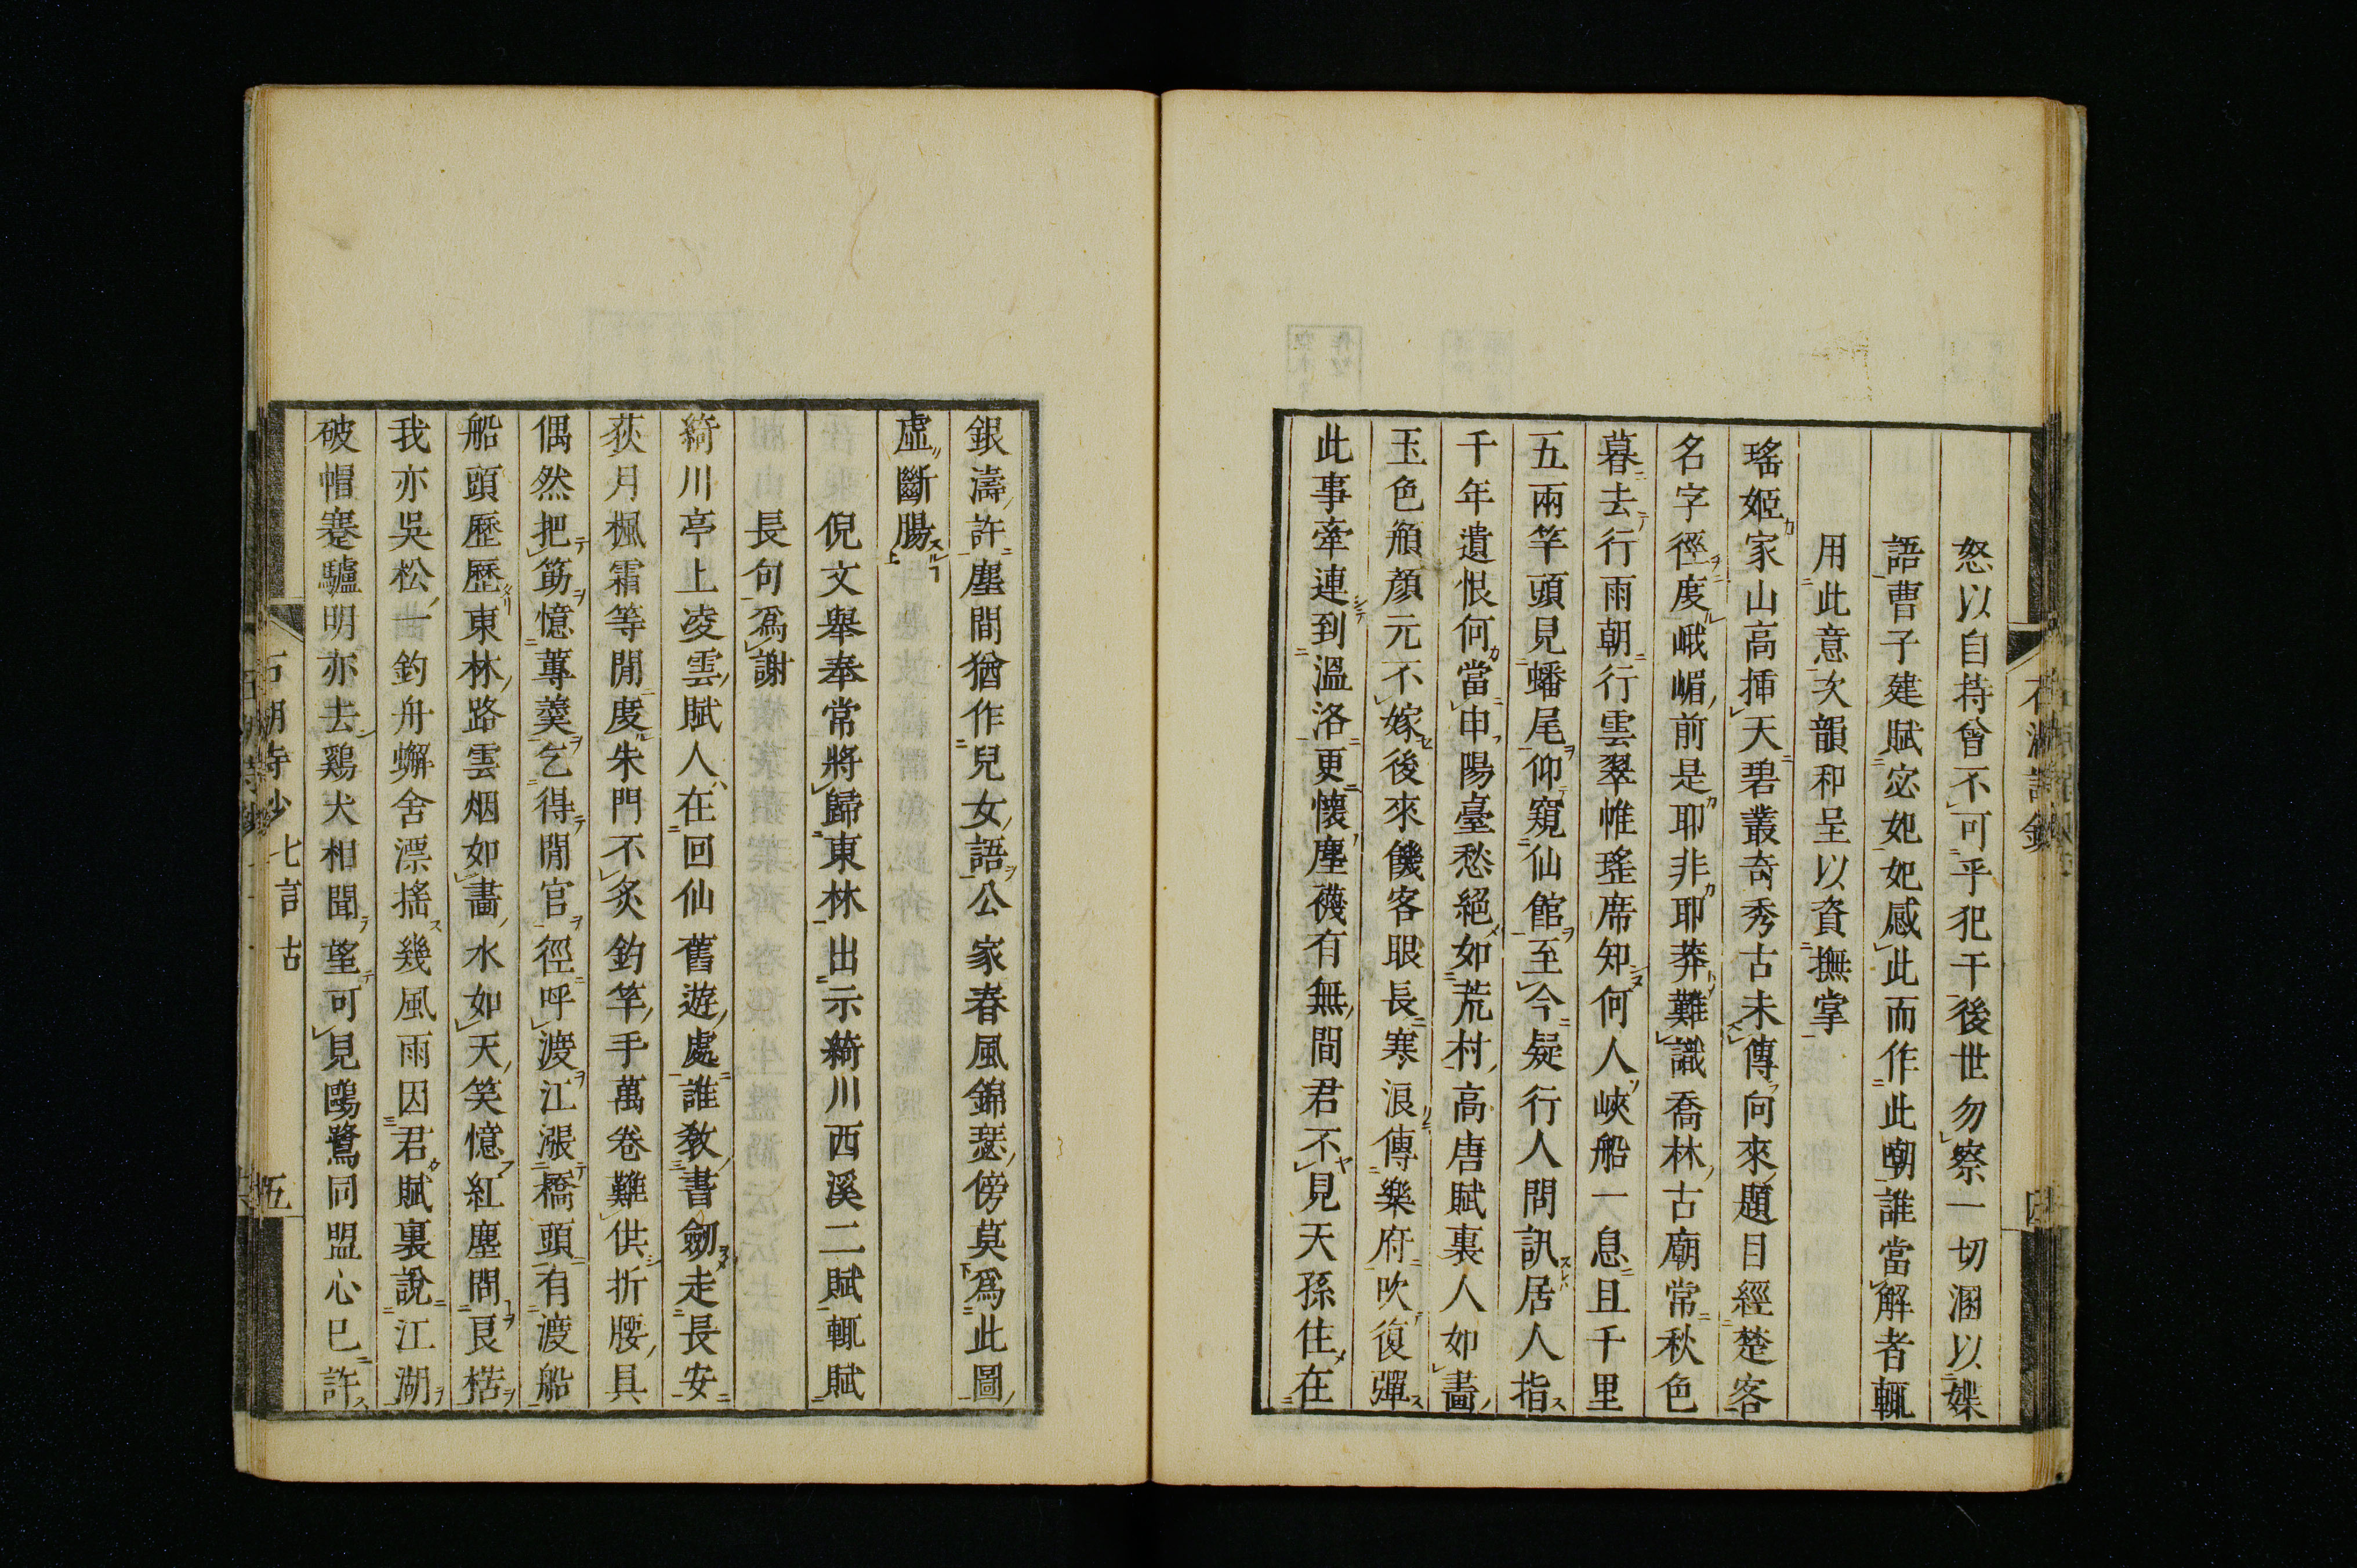 怒以自持曾不可乎犯干後世勿察一切溷以媟
語曹子建賦宓妃妃感此而作此嘲誰當解者輒
用此意次韻和呈以資撫掌
瑤姬家山高插天碧叢奇秀古未傳向來題目經楚客
名字徑度峨嵋前是耶非耶莽難識喬林古廟常秋色
暮去行雨朝行雲翠帷瑤席知何人峽船一息且千里
五兩竿頭見蟠尾仰窺仙館至今疑行人問訊居人指
千年遺恨何當申陽臺愁絕如荒村高唐賦裏人如畫
玉色頩顏元不嫁後來饑客眼長寒浪傳樂府吹復彈
此事牽連到溫洛更懷塵襪有無間君不見天孫住在
石湖詩鈔
四
銀濤許塵間猶作兒女語公家春風錦瑟傍莫爲此圖
虛斷腸
倪文舉奉常將歸東林出示綺川西溪二賦輒賦
長句爲謝
綺川亭上凌雲賦人在回仙舊遊處誰教書劒走長安
荻月楓霜等閒度朱門不炙釣竿手萬卷難供折腰具
偶然把筯憶蓴羹乞得閒官徑呼渡江漲橋頭有渡船
船頭歷歷東林路雲烟如畫水如天笑憶紅塵問艮楛
我亦吳松一釣舟蠏舍漂搖幾風雨因君賦裏說江湖
破帽蹇驢明亦去鷄犬相聞望可見鷗鷺同盟心已許
石湖詩鈔 七言古
五